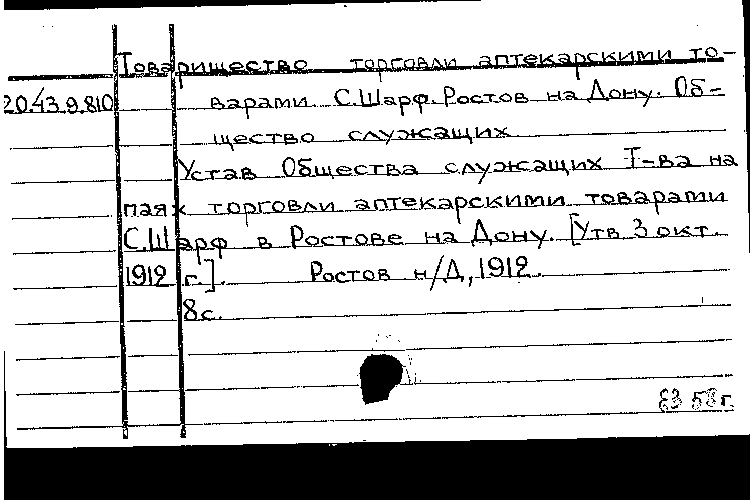 Товарищество торговли аптекарскими то-
20.43.9.810 варами С.Шарф. Ростов на Дону. Об-
щество служащих
Устав Общества служащих Т-ва на
паях торговли аптекарскими товарами
С.Шарф в Ростове на Дону. [Утв 3 окт.
1912 г.]. Ростов н/Д, 1912.
8с.
58г.